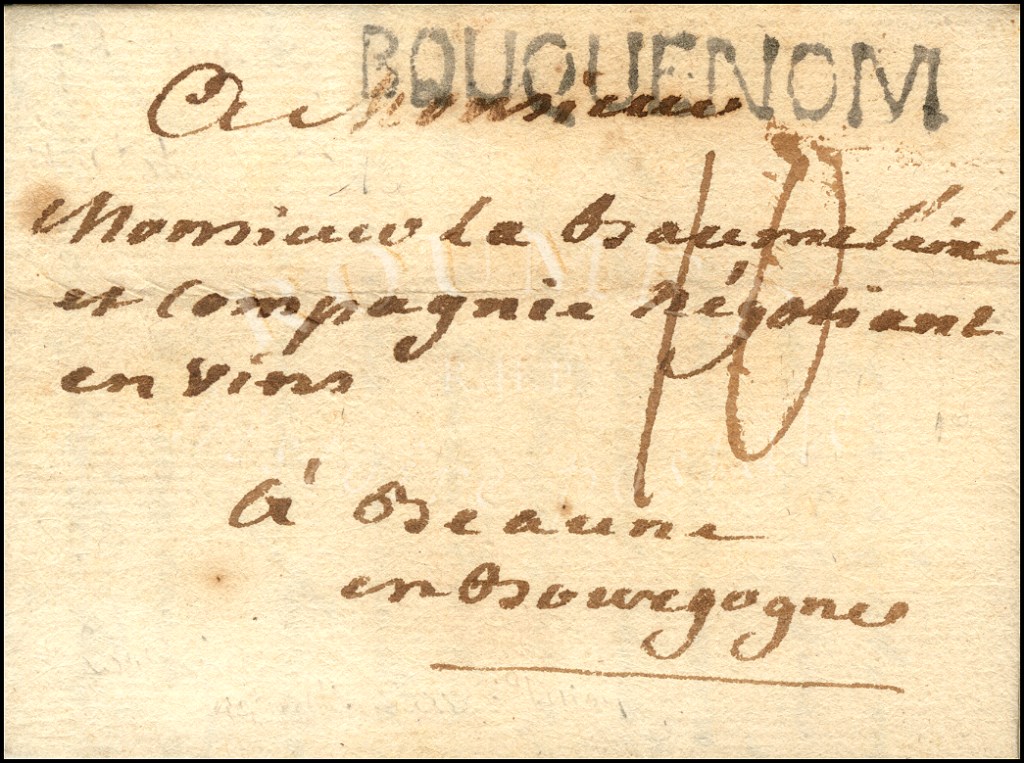 BOUQUENOM
A Monsieur
Monsieur La Baume l'ainé
et Compagnie Négotiant
en Vins
10
à Beaune
en Bourgogne
ROUMET